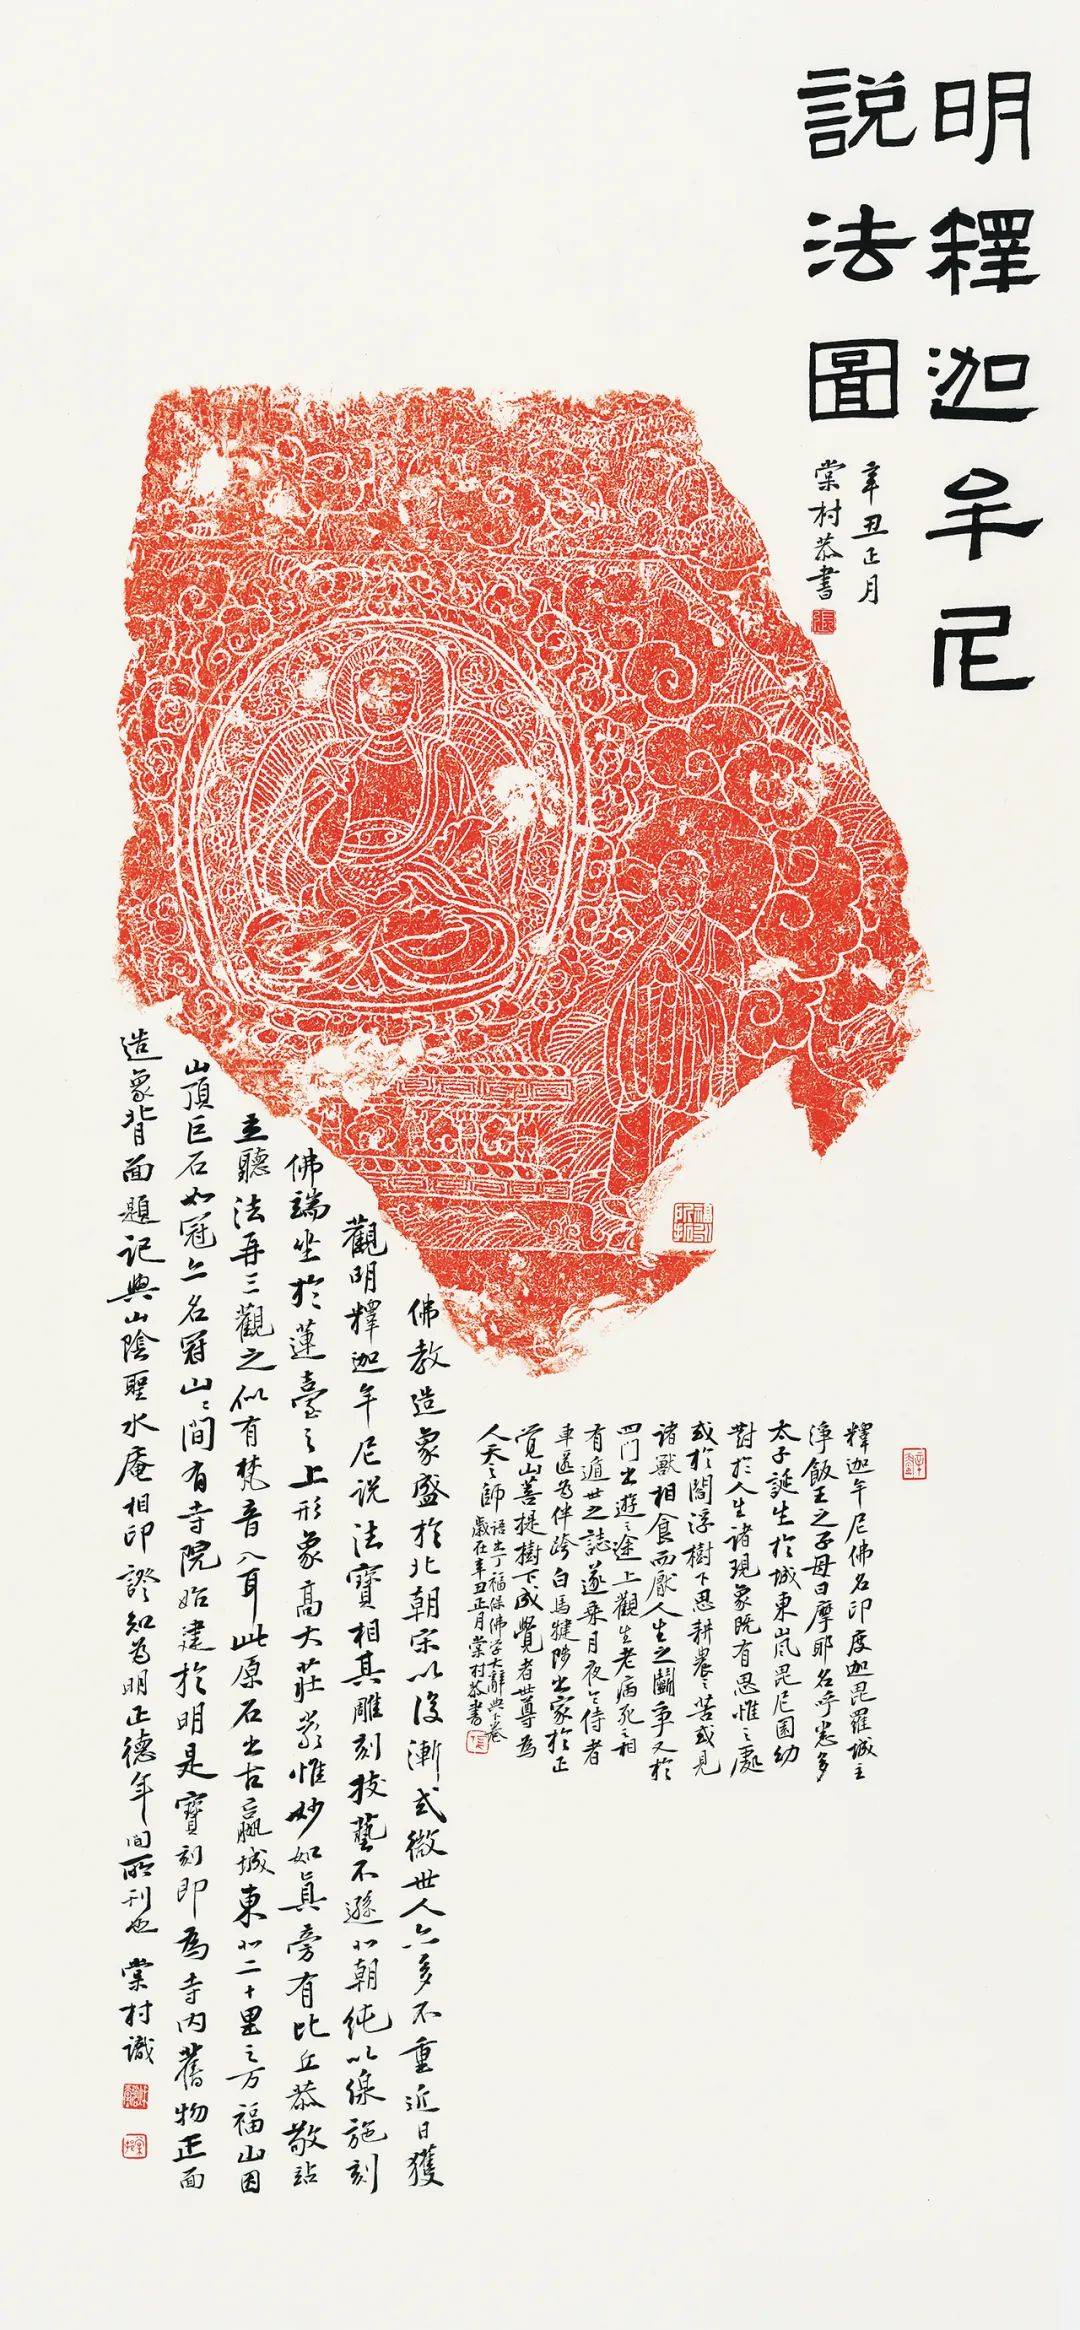 明釋迦牟尼
説法圖
辛丑正月
棠村恭書
釋迦牟尼佛名印度迦毘羅城主
淨飯王之子母曰摩耶名乎悉多
太子誕生於城東嵐毘尼園幼
對於人生諸現象既有思惟之處
或於閻浮樹下思耕農之苦或見
諸獸相食而厭人生之鬭爭又於
四門出遊之途上觀生老病死之相
有遁世之誌遂乘月夜令侍者
車匿為伴跨白馬犍陟出家於正
覺山菩提樹下成覺者世尊為
人天之師
語出丁福保佛学大辭典下卷
歲在辛丑正月棠村恭書
佛教造象盛於北朝宋以後漸式微世人亦多不重近日獲
觀明釋迦牟尼说法寶相其雕刻技藝不遜北朝純以線施刻
佛端坐於蓮臺之上形象高大莊嚴惟妙如真旁有比丘恭敬站
立聽法再三觀之似有梵音入耳此原石出古嬴城東北二十里之方福山因
山頂巨石如冠亦名冠山山間有寺院始建於明是寶刻即為寺内舊物正面
造象背面題記與山陰聖水庵相印證知為明正德年間所刊也 棠村識